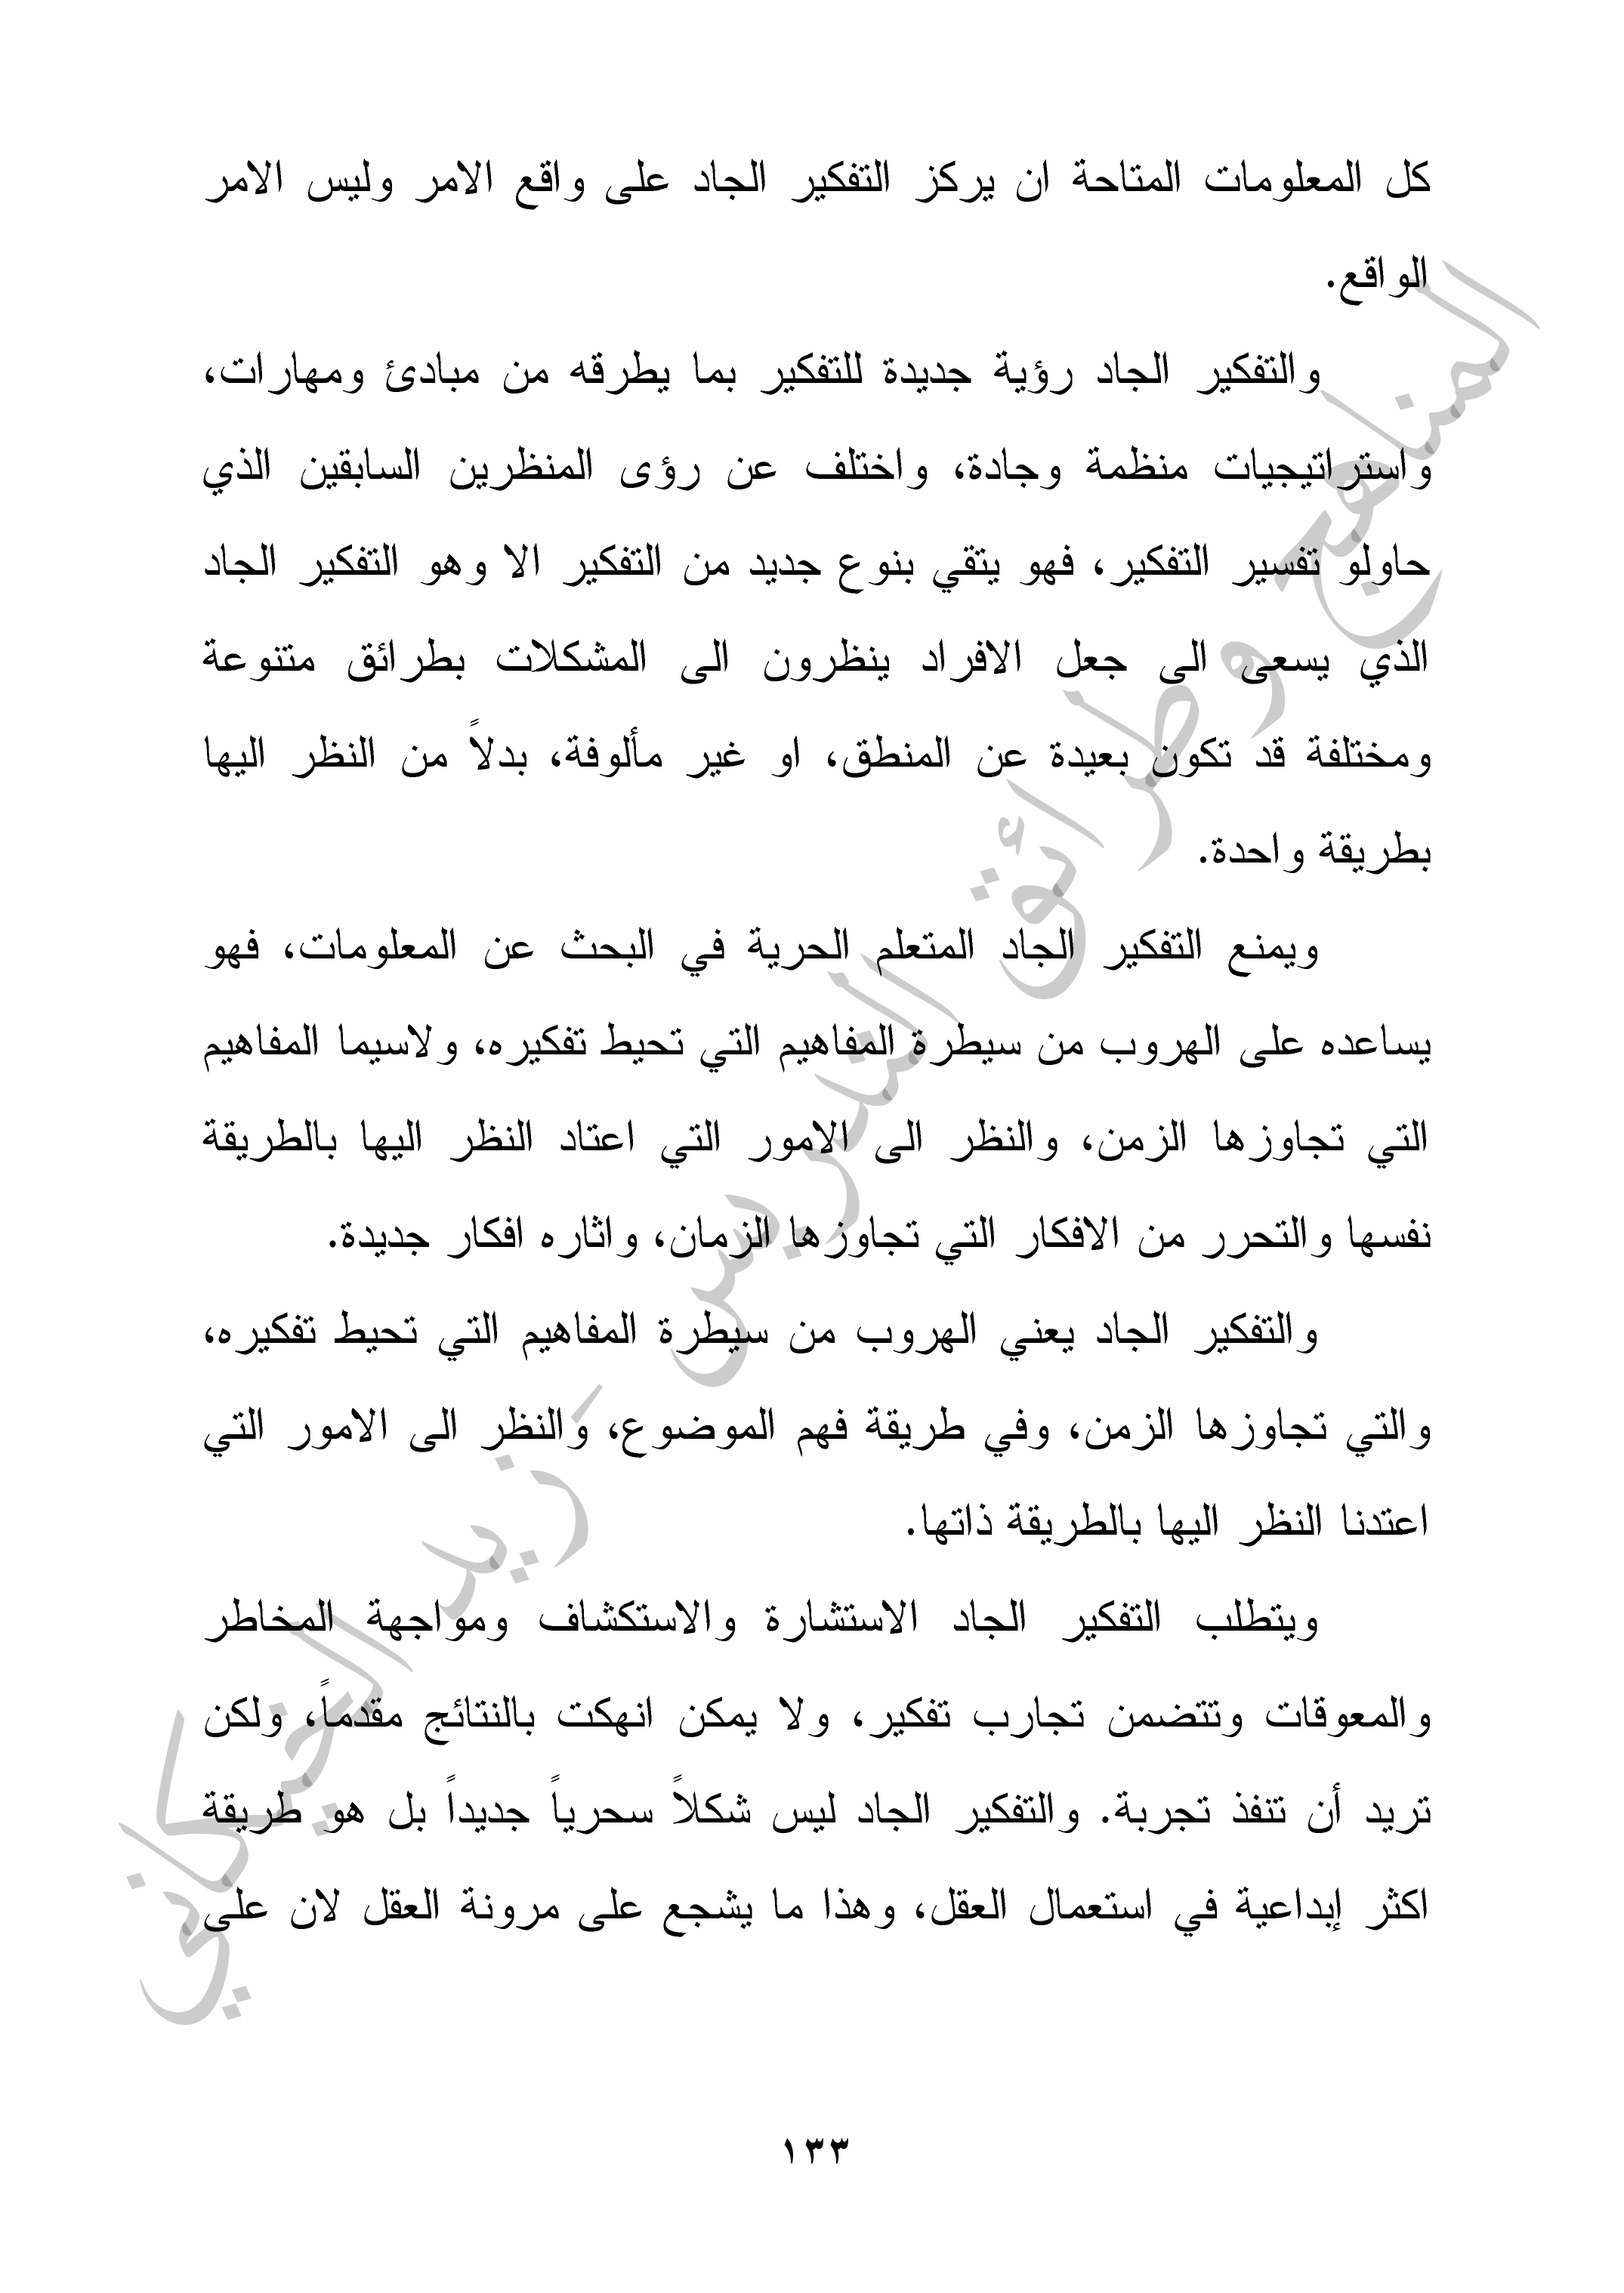 كل المعلومات المتاحة ان يركز التفكير الجاد على واقع الامر وليس الامر
الواقع.
والتفكير الجاد رؤية جديدة للتفكير بما يطرقه من مبادئ ومهارات،
واستراتيجيات منظمة وجادة، واختلف عن رؤى المنظرين السابقين الذي
حاولو تفسير التفكير، فهو يتقي بنوع جديد من التفكير الا وهو التفكير الجاد
الذي يسعى الى جعل الافراد ينظرون الى المشكلات بطرائق متنوعة
ومختلفة قد تكون بعيدة عن المنطق، او غير مألوفة، بدلاً من النظر اليها
بطريقة واحدة.
ويمنع التفكير الجاد المتعلم الحرية في البحث عن المعلومات، فهو
يساعده على الهروب من سيطرة المفاهيم التي تحيط تفكيره، ولاسيما المفاهيم
التي تجاوزها الزمن، والنظر الى الامور التي اعتاد النظر اليها بالطريقة
نفسها والتحرر من الافكار التي تجاوزها الزمان، واثاره افكار جديدة.
والتفكير الجاد يعني الهروب من سيطرة المفاهيم التي تحيط تفكيره،
والتي تجاوزها الزمن، وفي طريقة فهم الموضوع، والنظر الى الامور التي
اعتدنا النظر اليها بالطريقة ذاتها.
ويتطلب التفكير الجاد الاستشارة والاستكشاف ومواجهة المخاطر
والمعوقات وتتضمن تجارب تفكير، ولا يمكن انهكت بالنتائج مقدماً، ولكن
تريد أن تنفذ تجربة. والتفكير الجاد ليس شكلاً سحرياً جديداً بل هو طريقة
اكثر إبداعية في استعمال العقل، وهذا ما يشجع على مرونة العقل لان على
المناهج وطرائق التدريس - زيد الخيكاني
١٣٣